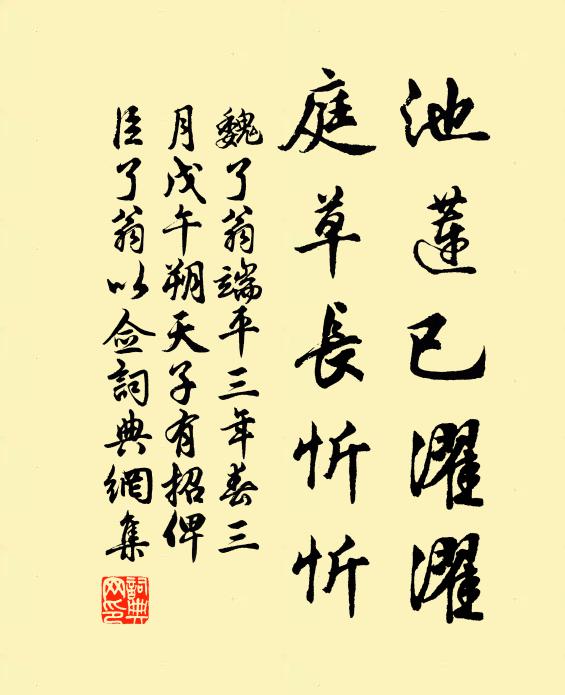 池蓮已濯濯
庭草長忻忻
魏了翁端平三年春三
月戊午朔天子有招俾
臣了翁以僉詞典網集
詞典网印